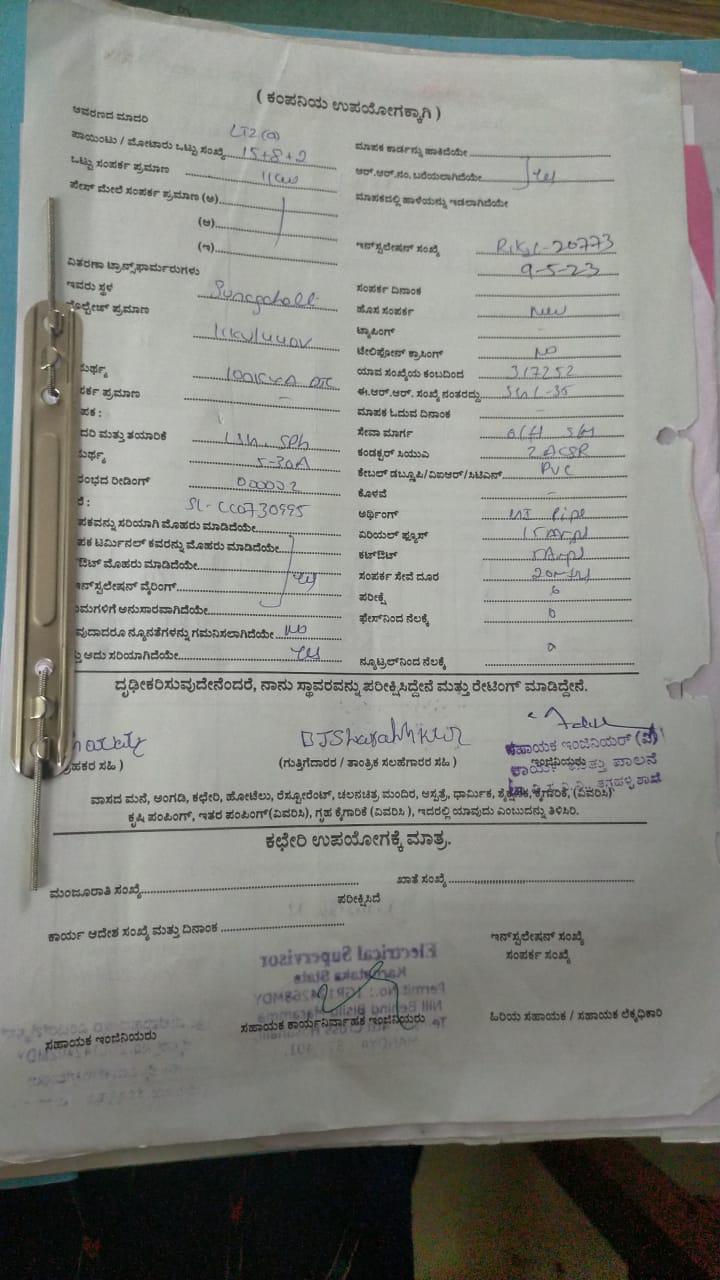 ( ಕಂಪನಿಯ ಉಪಯೋಗಕ್ಕಾಗಿ )
ಆವರಣದ ಮಾದರಿ LT2(a)
ಪಾಯಿಂಟು / ಮೋಟಾರು ಒಟ್ಟು ಸಂಖ್ಯೆ 15+8+2
ಒಟ್ಟು ಸಂಪರ್ಕ ಪ್ರಮಾಣ 1kw
ಪೇಸ್ ಮೇಲೆ ಸಂಪರ್ಕ ಪ್ರಮಾಣ (ಅ)
(ಆ)
(ಇ)
ವಿತರಣಾ ಟ್ರಾನ್ಸ್‌ಫಾರ್ಮರುಗಳು
ಇವರು ಸ್ಥಳ Sunagahalli
ವೋಲ್ಟೇಜ್ ಪ್ರಮಾಣ
11KV/440V
ಮರ್ಥ್ಯ 100KVA DTC
ರ್ಕ ಪ್ರಮಾಣ -
ಪಕ :
ದರಿ ಮತ್ತು ತಯಾರಿಕೆ L&h. SPh
ಮರ್ಥ್ಯ 5-30A
ರಂಭದ ರೀಡಿಂಗ್ 000002
: Sl-CC0730995
ಪಕವನ್ನು ಸರಿಯಾಗಿ ಮೊಹರು ಮಾಡಿದೆಯೇ
ಪಕ ಟರ್ಮಿನಲ್ ಕವರನ್ನು ಮೊಹರು ಮಾಡಿದೆಯೇ
ಔಟ್ ಮೊಹರು ಮಾಡಿದೆಯೇ Yes
ಇನ್‌ಸ್ಟಲೇಷನ್ ವೈರಿಂಗ್
ಮಗಳಿಗೆ ಅನುಸಾರವಾಗಿದೆಯೇ
ವುದಾದರೂ ನ್ಯೂನತೆಗಳನ್ನು ಗಮನಿಸಲಾಗಿದೆಯೇ No
ು ಅದು ಸರಿಯಾಗಿದೆಯೇ Yes
ಮಾಪಕ ಕಾರ್ಡನ್ನು ಹಾಕಿದೆಯೇ
ಆರ್.ಆರ್.ನಂ. ಬರೆಯಲಾಗಿದೆಯೇ Yes
ಮಾಪಕದಲ್ಲಿ ಹಾಳೆಯನ್ನು ಇಡಲಾಗಿದೆಯೇ
ಇನ್‌ಸ್ಟಲೇಷನ್ ಸಂಖ್ಯೆ RKSL-20773
9-5-23
ಸಂಪರ್ಕ ದಿನಾಂಕ
ಹೊಸ ಸಂಪರ್ಕ New
ಟ್ಯಾಪಿಂಗ್ -
ಟೇಲಿಫೋನ್ ಕ್ರಾಸಿಂಗ್ No
ಯಾವ ಸಂಖ್ಯೆಯ ಕಂಬದಿಂದ 317252
ಈ.ಆರ್.ಆರ್. ಸಂಖ್ಯೆ ನಂತರದ್ದು SHL-35
ಮಾಪಕ ಓದುವ ದಿನಾಂಕ -
ಸೇವಾ ಮಾರ್ಗ O/H S/M
ಕಂಡಕ್ಟರ್ ಸಿಯುಎ 2 ACSR
ಕೇಬಲ್ ಡಬ್ಲ್ಯೂಪಿ/ವಿಐಆರ್/ಸಿಟಿಎಸ್ PVC
ಕೊಳವೆ -
ಅರ್ಥಿಂಗ್ GI Pipe
ಏರಿಯಲ್ ಫ್ಯೂಸ್ 15 Amp
ಕಟ್‌ಔಟ್ 5Amp
ಸಂಪರ್ಕ ಸೇವೆ ದೂರ 20mtr
ಪರೀಕ್ಷೆ 6
ಫೇಸ್‌ನಿಂದ ನೆಲಕ್ಕೆ 0
ನ್ಯೂಟ್ರಲ್‌ನಿಂದ ನೆಲಕ್ಕೆ 0
ದೃಢೀಕರಿಸುವುದೇನೆಂದರೆ, ನಾನು ಸ್ಥಾವರವನ್ನು ಪರೀಕ್ಷಿಸಿದ್ದೇನೆ ಮತ್ತು ರೇಟಿಂಗ್ ಮಾಡಿದ್ದೇನೆ.
ಗ್ರಾಹಕರ ಸಹಿ )
(ಗುತ್ತಿಗೆದಾರರ / ತಾಂತ್ರಿಕ ಸಲಹೆಗಾರರ ಸಹಿ )
ಸಹಾಯಕ ಇಂಜಿನಿಯರ್ (ವಿ)
ಇಂಜಿನಿಯರು
ಕಾರ್ಯ ಮತ್ತು ಪಾಲನೆ
ವಾಸದ ಮನೆ, ಅಂಗಡಿ, ಕಛೇರಿ, ಹೋಟೆಲು, ರೆಸ್ಟೋರೆಂಟ್, ಚಲನಚಿತ್ರ ಮಂದಿರ, ಆಸ್ಪತ್ರೆ, ಧಾರ್ಮಿಕ, ಶೈಕ್ಷಣಿಕ, ಕೈಗಾರಿಕೆ, (ವಿವರಿಸಿ)
ಕೃಷಿ ಪಂಪಿಂಗ್, ಇತರ ಪಂಪಿಂಗ್(ವಿವರಿಸಿ), ಗೃಹ ಕೈಗಾರಿಕೆ (ವಿವರಿಸಿ ), ಇದರಲ್ಲಿ ಯಾವುದು ಎಂಬುದನ್ನು ತಿಳಿಸಿರಿ.
ಕಛೇರಿ ಉಪಯೋಗಕ್ಕೆ ಮಾತ್ರ.
ಮಂಜೂರಾತಿ ಸಂಖ್ಯೆ
ಖಾತೆ ಸಂಖ್ಯೆ
ಪರೀಕ್ಷಿಸಿದೆ
ಕಾರ್ಯ ಆದೇಶ ಸಂಖ್ಯೆ ಮತ್ತು ದಿನಾಂಕ
ಇನ್‌ಸ್ಟಲೇಷನ್ ಸಂಖ್ಯೆ
ಸಂಪರ್ಕ ಸಂಖ್ಯೆ
ಸಹಾಯಕ ಇಂಜಿನಿಯರು
ಸಹಾಯಕ ಕಾರ್ಯನಿರ್ವಾಹಕ ಇಂಜಿನಿಯರು
ಹಿರಿಯ ಸಹಾಯಕ / ಸಹಾಯಕ ಲೆಕ್ಕಧಿಕಾರಿ